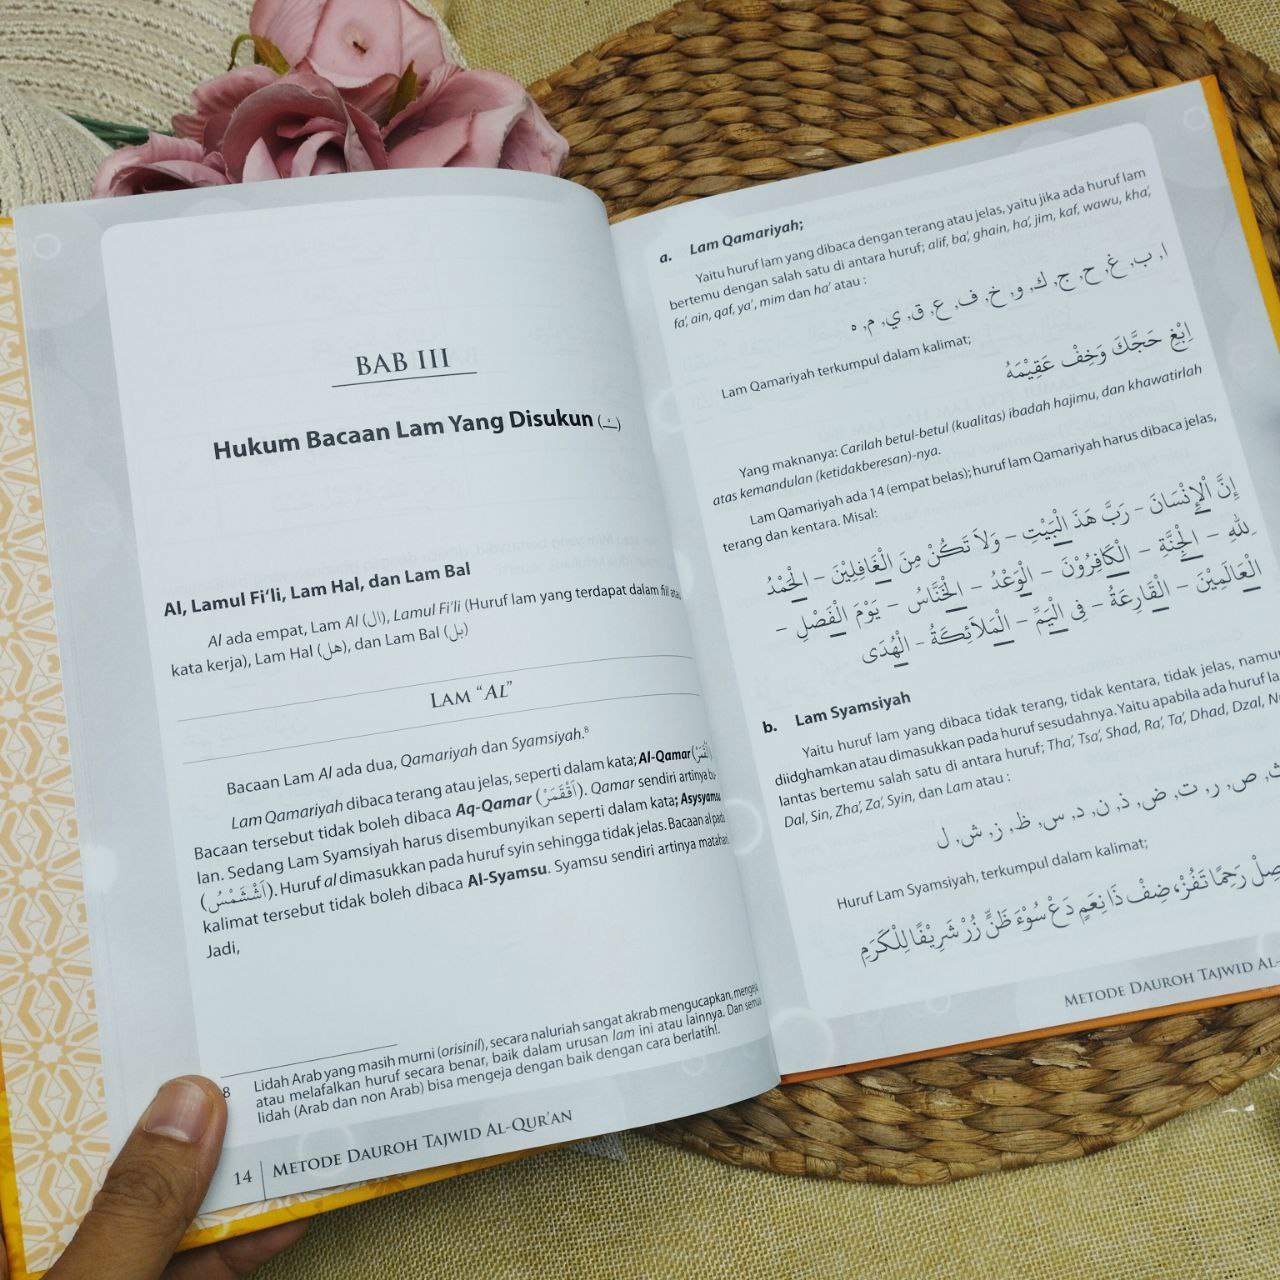 BAB III
Hukum Bacaan Lam Yang Disukun (ـْـ)
Al, Lamul Fi’li, Lam Hal, dan Lam Bal
Al ada empat, Lam Al (ال), Lamul Fi’li (Huruf lam yang terdapat dalam fiil atau
kata kerja), Lam Hal (هل), dan Lam Bal (بل)
LAM “AL”
Bacaan Lam Al ada dua, Qamariyah dan Syamsiyah.⁸
Lam Qamariyah dibaca terang atau jelas, seperti dalam kata; Al-Qamar
Bacaan tersebut tidak boleh dibaca Aq-Qamar (اَقْقَمَرْ). Qamar sendiri artinya bu-
lan. Sedang Lam Syamsiyah harus disembunyikan seperti dalam kata; Asysyamsu
(اَشْشَمْسُ). Huruf al dimasukkan pada huruf syin sehingga tidak jelas. Bacaan al pada
kalimat tersebut tidak boleh dibaca Al-Syamsu. Syamsu sendiri artinya matahari.
Jadi,
8 Lidah Arab yang masih murni (orisinil), secara naluriah sangat akrab mengucapkan, mengeja
atau melafalkan huruf secara benar, baik dalam urusan lam ini atau lainnya. Dan semua
lidah (Arab dan non Arab) bisa mengeja dengan baik dengan cara berlatih!.
14 METODE DAUROH TAJWID AL-QUR’AN
a. Lam Qamariyah;
Yaitu huruf lam yang dibaca dengan terang atau jelas, yaitu jika ada huruf lam
bertemu dengan salah satu di antara huruf; alif, ba’, ghain, ha’, jim, kaf, wawu, kha’,
fa’, ain, qaf, ya’, mim dan ha’ atau :
ا, ب, غ, ح, ج, ك, و, خ, ف, ع, ق, ي, م, ه
Lam Qamariyah terkumpul dalam kalimat;
اِبْغِ حَجَّكَ وَخِفْ عَقِيْمَهُ
Yang maknanya: Carilah betul-betul (kualitas) ibadah hajimu, dan khawatirlah
atas kemandulan (ketidakberesan)-nya.
Lam Qamariyah ada 14 (empat belas); huruf lam Qamariyah harus dibaca jelas,
terang dan kentara. Misal:
إِنَّ الْإِنْسَانَ – رَبَّ هَذَ الْبَيْتِ – وَلاَ تَكُنْ مِنَ الْغَافِلِيْنَ – الْحَمْدُ
لِلهِ – الْجِنَّةِ – الْكَافِرُوْنَ – الْوَعْدُ – الْخَنَّاسُ – يَوْمَ الْفَصْلِ –
الْعَالَمِيْنَ – الْقَارِعَةُ – فِى الْيَمِّ – الْمَلاَئِكَةُ – الْهُدَى
b. Lam Syamsiyah
Yaitu huruf lam yang dibaca tidak terang, tidak kentara, tidak jelas, namun
diidghamkan atau dimasukkan pada huruf sesudahnya. Yaitu apabila ada huruf
lantas bertemu salah satu di antara huruf; Tha’, Tsa’, Shad, Ra’, Ta’, Dhad, Dzal,
Dal, Sin, Zha’, Za’, Syin, dan Lam atau :
ص, ر, ت, ض, ذ, ن, د, س, ظ, ز, ش, ل
Huruf Lam Syamsiyah, terkumpul dalam kalimat;
رَحِمًا تَفُزْ, ضِفْ ذَا نِعَمٍ دَعْ سُوْءَ ظَنٍّ زُرْ شَرِيْفًا لِلْكَرَمِ
METODE DAUROH TAJWID